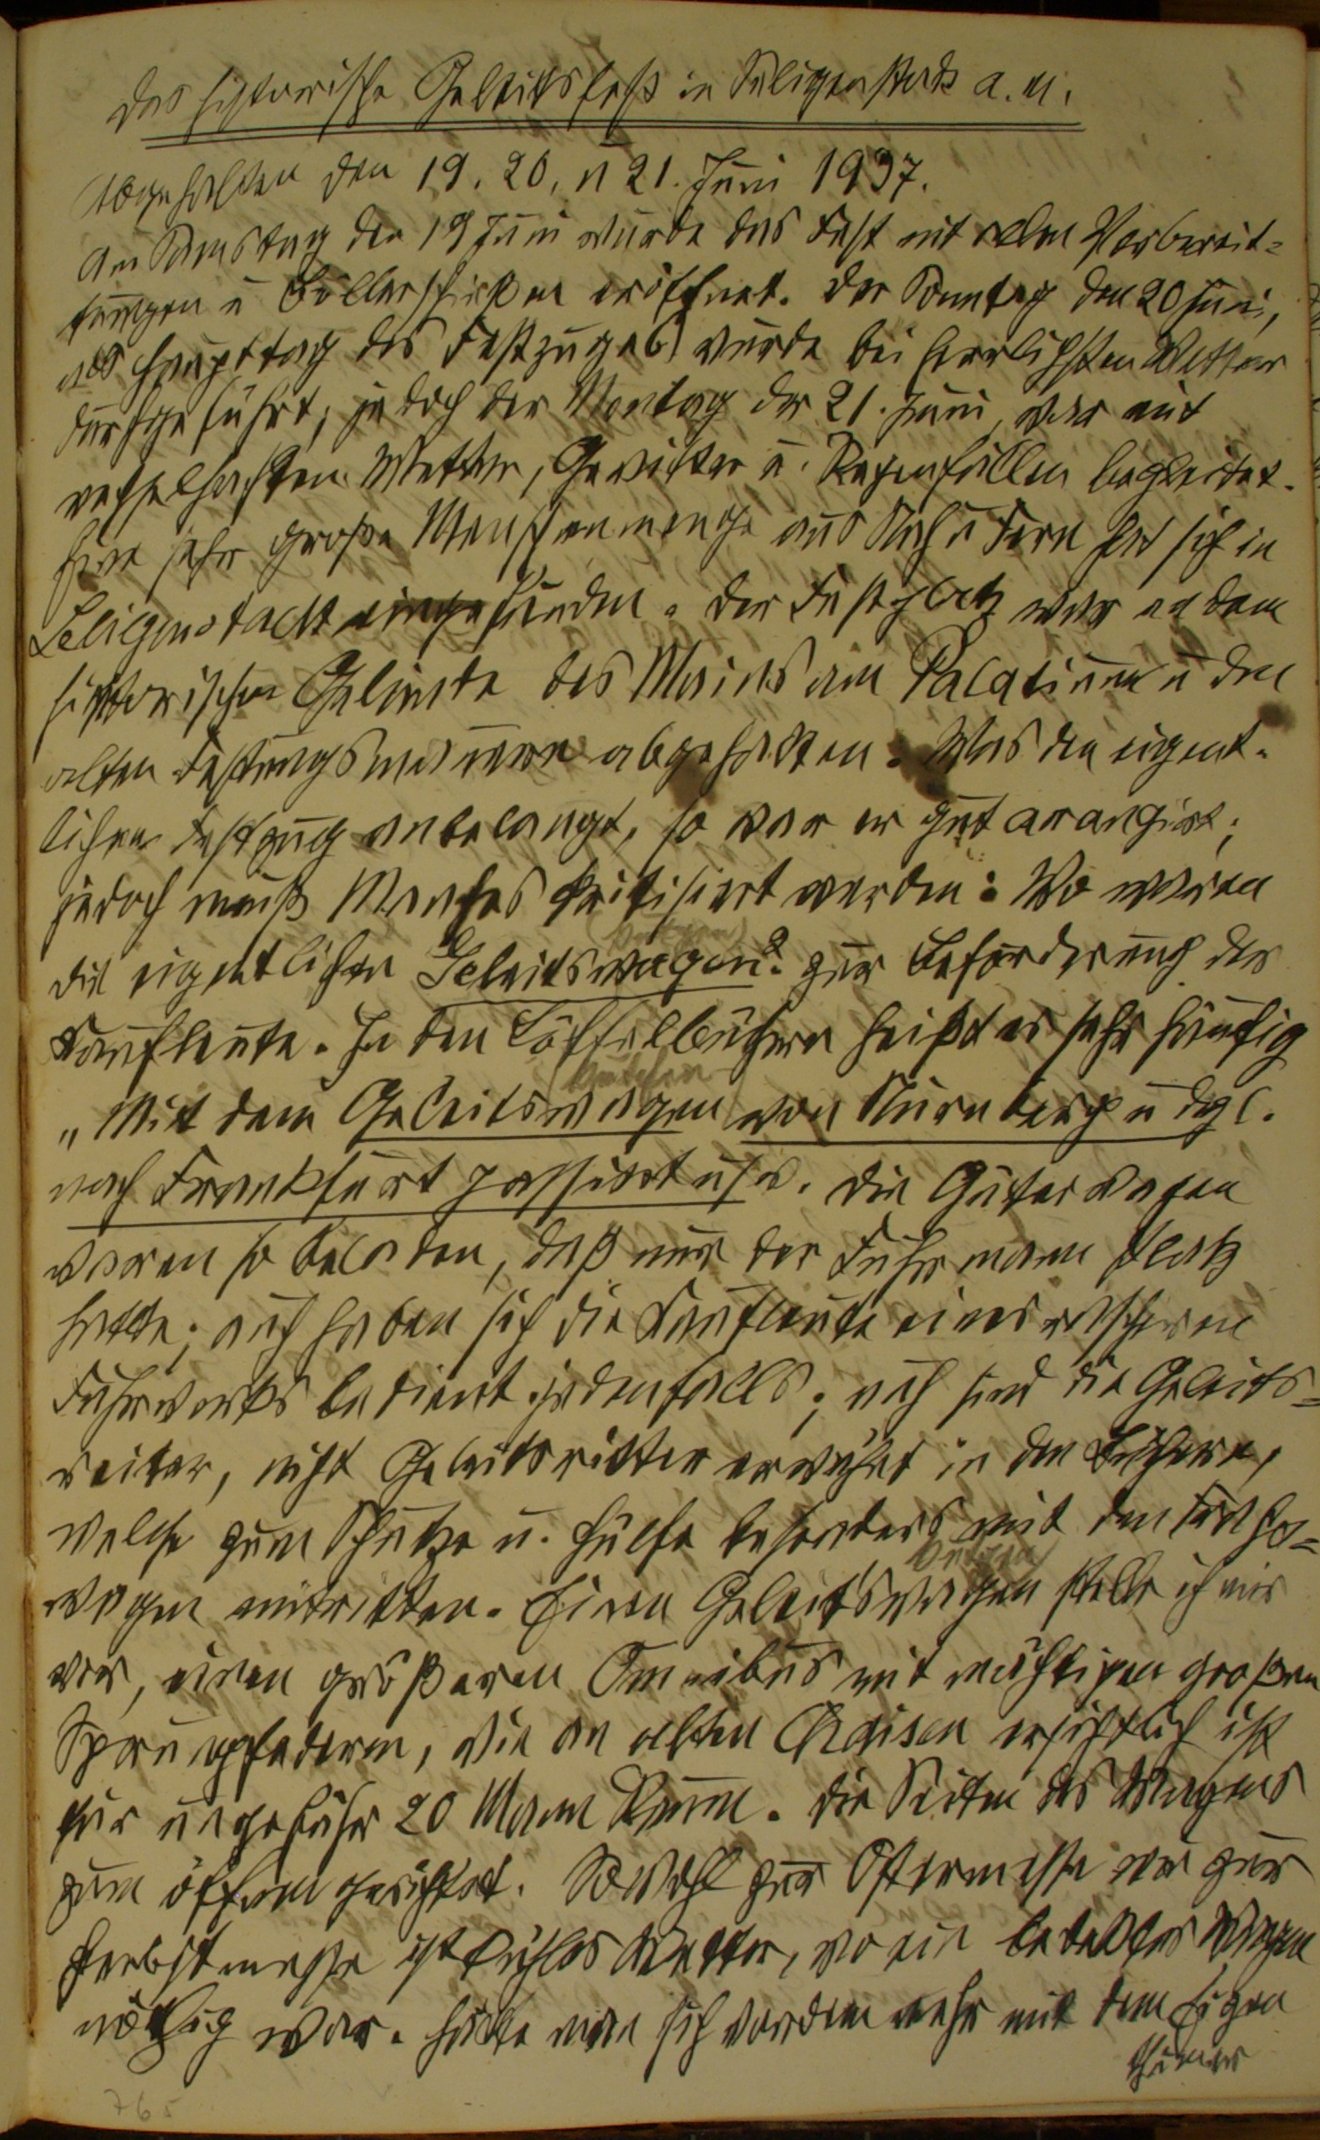 Das historische Geleitsfest in Seligenstadt a. M.
Abgehalten den 19. 20. u 21. Juni 1937.
Am Samstag den 19 Juni wurde das Fest mit allen Vorbereit=
tungen u Böllerschießen eröffnet. Der Sonntag den 20 Juni,
als Haupttag des Festzuges) wurde bei herrlichsten Wetter
durchgeführt, jedoch der Montag der 21. Juni, war mit
wechselhaften Wetter, Gewitter u. Regenfällen begleitet.
Eine sehr große Menschenmenge aus Nah u Fern hat sich in
Seligenstadt eingefunden. Der Festplatz war an dem
historischen Gelände des Mains am Palatium u den
alten Festungsmauern abgehalten. Was den eigent-
lichen Festzug anbelangt, so war er gut arangirt;
jedoch muß Manches kritisiert werden: Wo waren
die eigentlichen Geleitswagen? zur Beförderung der
Kaufleute. In den Löffelbüchern heißt es sehr häufig
„Mit dem Geleitswagen von Nürnberg u dgl.
nach Frankfurt passiert usw. Die Güterwagen
waren so beladen, daß nur der Fuhrmann Platz
hatte; auch haben sich die Kaufleute eines rascheren
Fuhrwerks bedient jedenfalls; auch sind die Geleits=
reiter, nicht Geleitsritter erwähnt in den Büchern,
welche zum Schutze u. Hülfe besonders mit den
wagen mitritten. Einen Geleitswagen stelle ich mir
vor, einen größeren Omnibus mit mächtigen großen
Sprungfedern, wie an alten Chaisen ersichtlich ist
für ungefähr 20 Mann Raum. Die Seiten des Wagens
zum öffnen gerichtet. Sowohl zur Ostermesse wie zur
Herbstmesse ist kühles Wetter, wo ein bedecktes Wagen
nöthig war. Hätte man sich vordem mehr mit dem Eigen
thümer
765